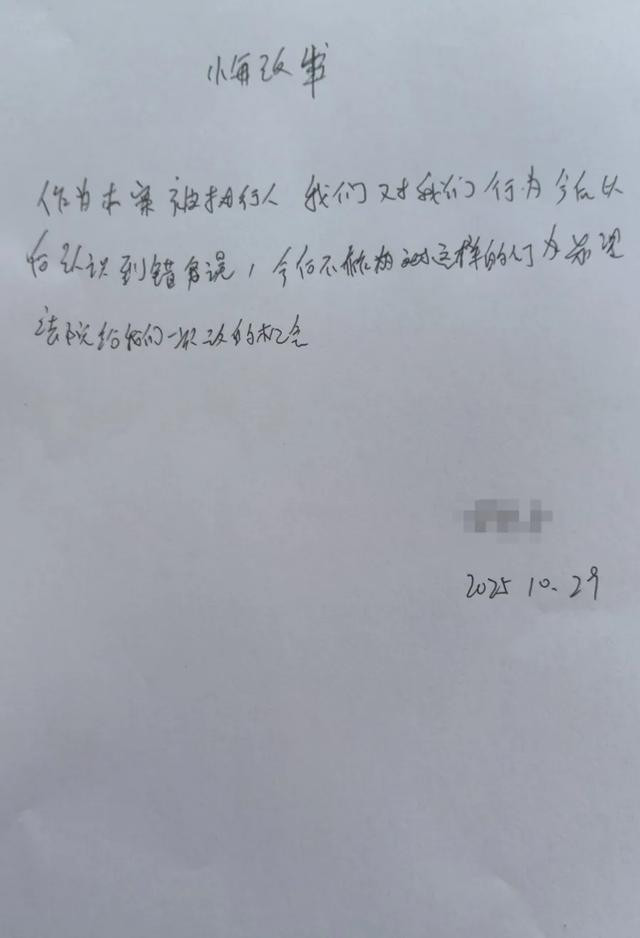 悔改书
作为本案被执行人 我们对我们行为今后以
后认识到错误，今后不在有这样的行为希望
法院给我们一次改的机会
2025 10.29